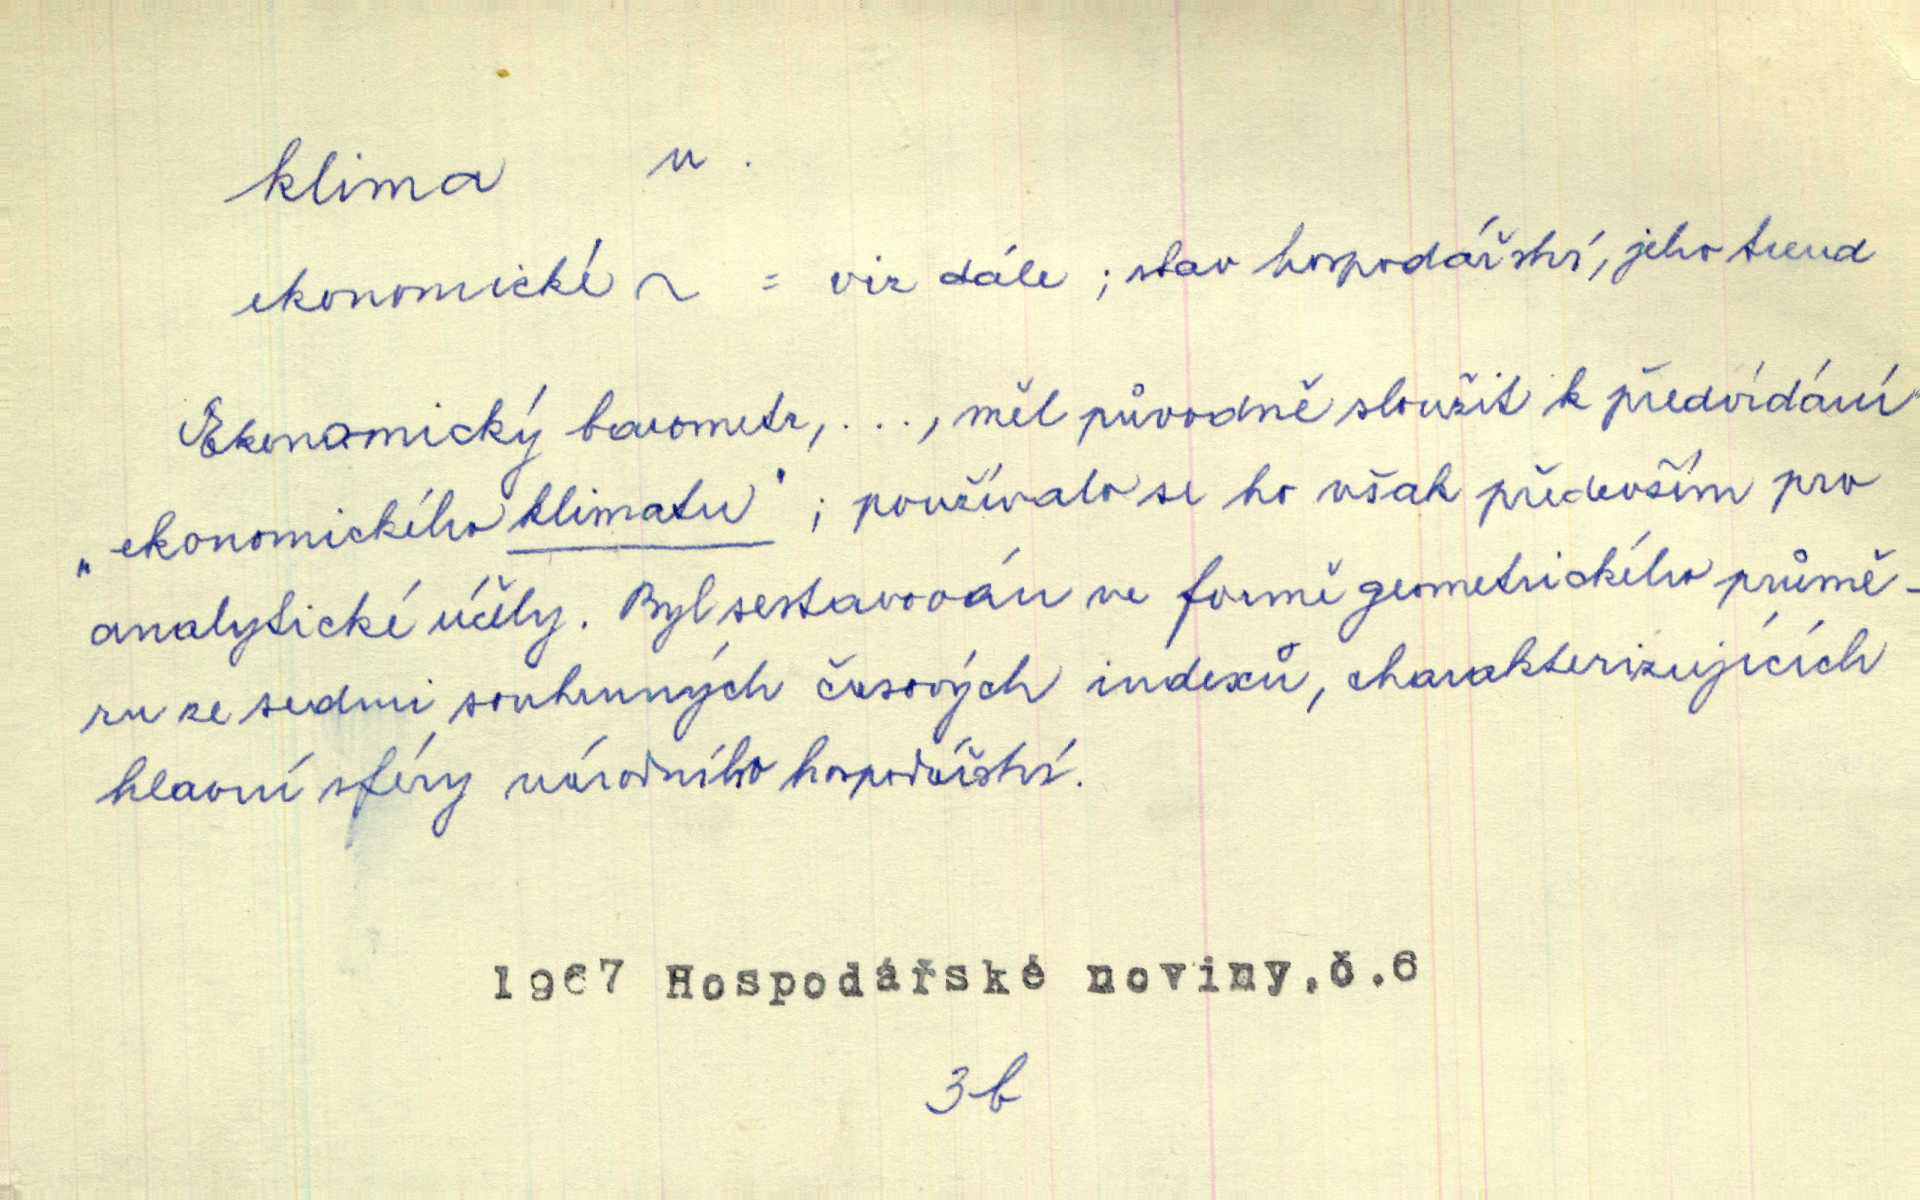 klima n.
ekonomické ~ = viz dále ; stav hospodářství, jeho trend
Ekonomický barometr, ..., měl původně sloužit k předvídání
„ekonomického klimatu" ; používalo se ho však především pro
analytické účely. Byl sestavován ve formě geometrického průmě-
ru ze sedmi souhrnných časových indexů, charakterizujících
hlavní sféry národního hospodářství.
1967 Hospodářské noviny,č.6
3b